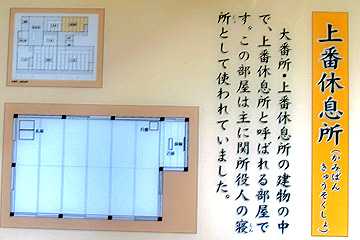 上番休息所
(かみばん
きゅうそくしょ)
大番所・上番休息所の建物の中
で、上番休息所と呼ばれる部屋で
す。この部屋は主に関所役人の寝
所として使われていました。